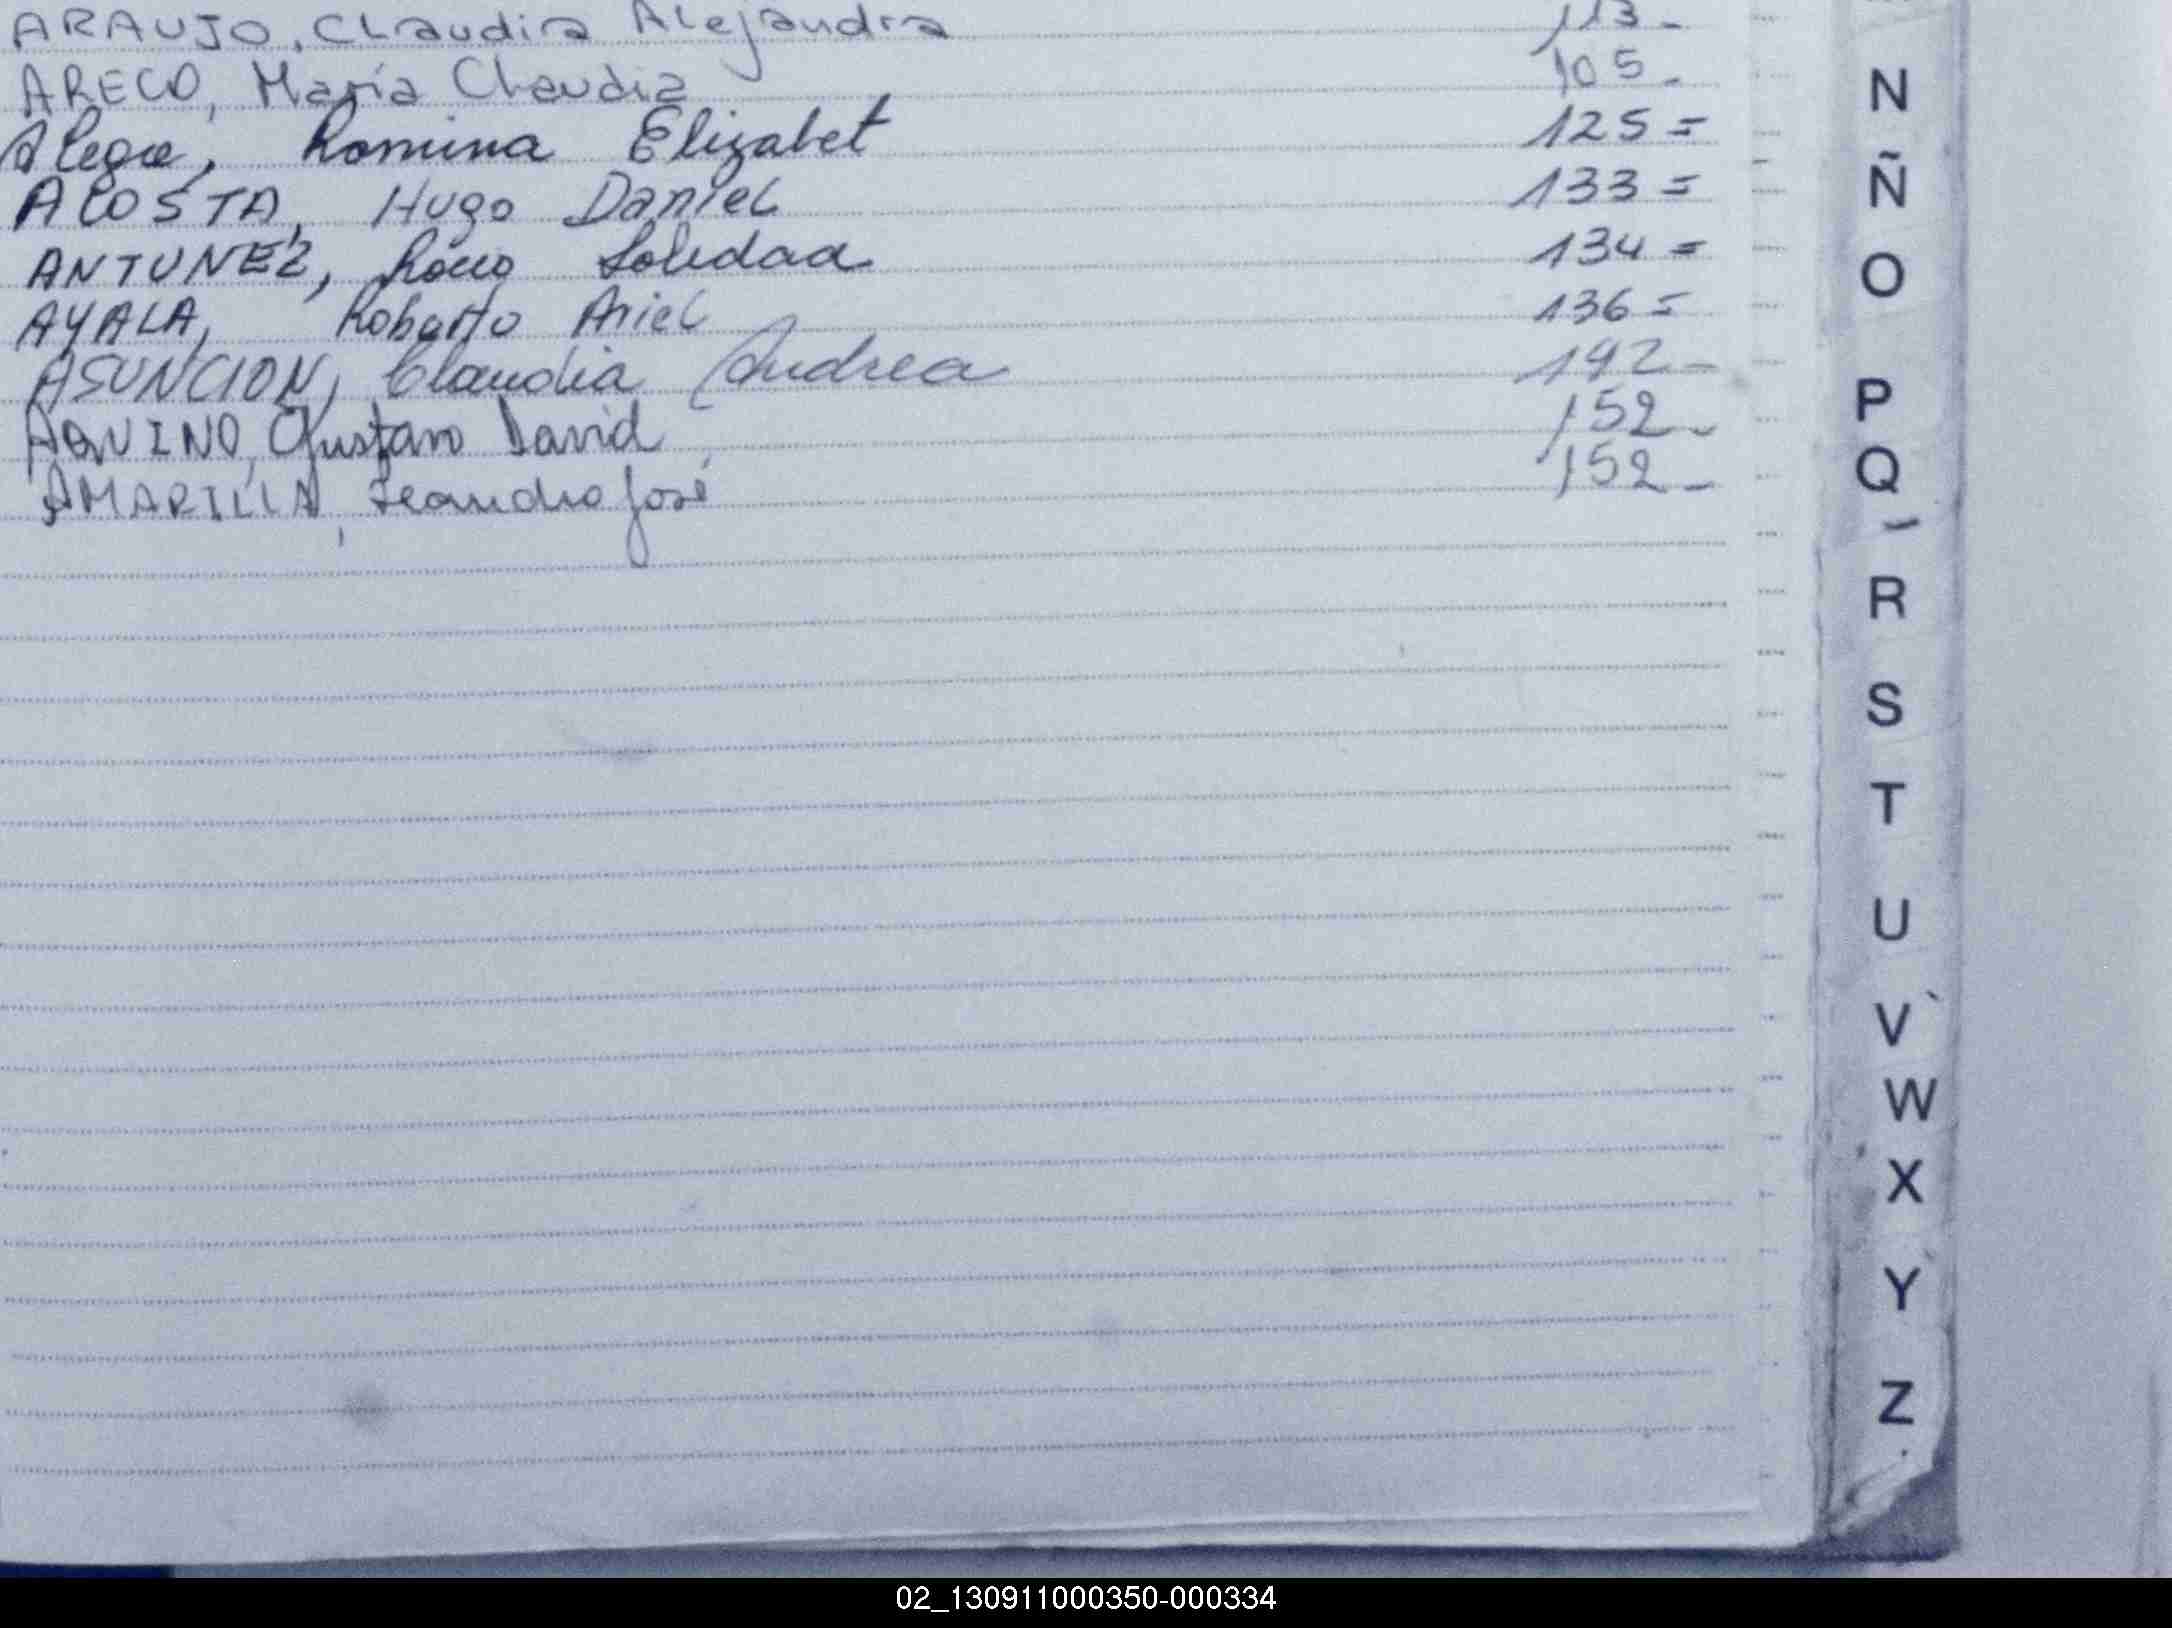 ARAUJO, Claudia Alejandra 113-
ARECO, María Claudia 105-
Alegre, Romina Elizabet 125=
ACOSTA, Hugo Daniel 133=
ANTUNEZ, Rocio Soledad 134=
AYALA, Roberto Ariel 136=
ASUNCION, Claudia Andrea 142-
AQUINO, Gustavo David 152-
AMARILLA, Leandro José 152-
N
Ñ
O
P
Q
R
S
T
U
V
W
X
Y
Z
02_130911000350-000334